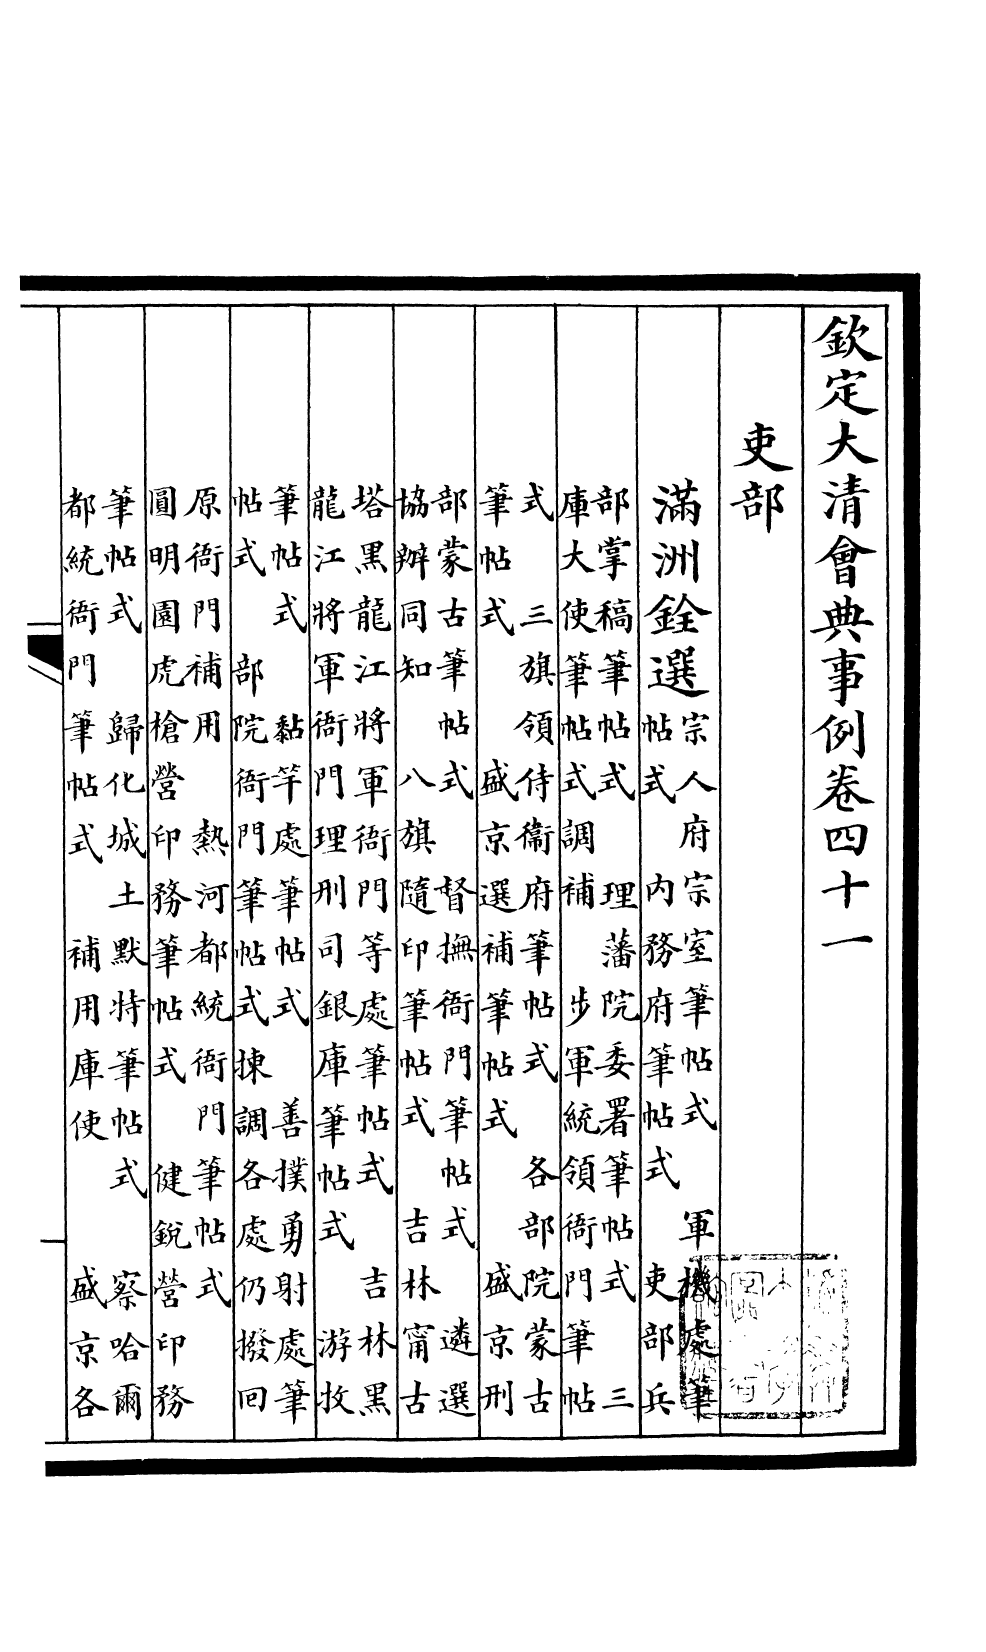 欽定大清會典事例卷四十一
吏部
滿洲銓選宗人府宗室筆帖式　軍機處筆
帖式　內務府筆帖式　吏部兵
部掌稿筆帖式　理藩院委署筆帖式　三
庫大使筆帖式調補　步軍統領衙門筆帖
式　三旗領侍衞府筆帖式　各部院蒙古
筆帖式　盛京選補筆帖式　盛京刑
部蒙古筆帖式　督撫衙門筆帖式　遴選
協辦同知　八旗隨印筆帖式　吉林甯古
塔黑龍江將軍衙門等處筆帖式　吉林黑
龍江將軍衙門理刑司銀庫筆帖式　游牧
筆帖式　黏竿處筆帖式　善撲勇射處筆
帖式　部院衙門筆帖式揀調各處仍撥回
原衙門補用　熱河都統衙門筆帖式
圓明園虎槍營印務筆帖式　健銳營印務
筆帖式　歸化城土默特筆帖式　察哈爾
都統衙門筆帖式　補用庫使　盛京各